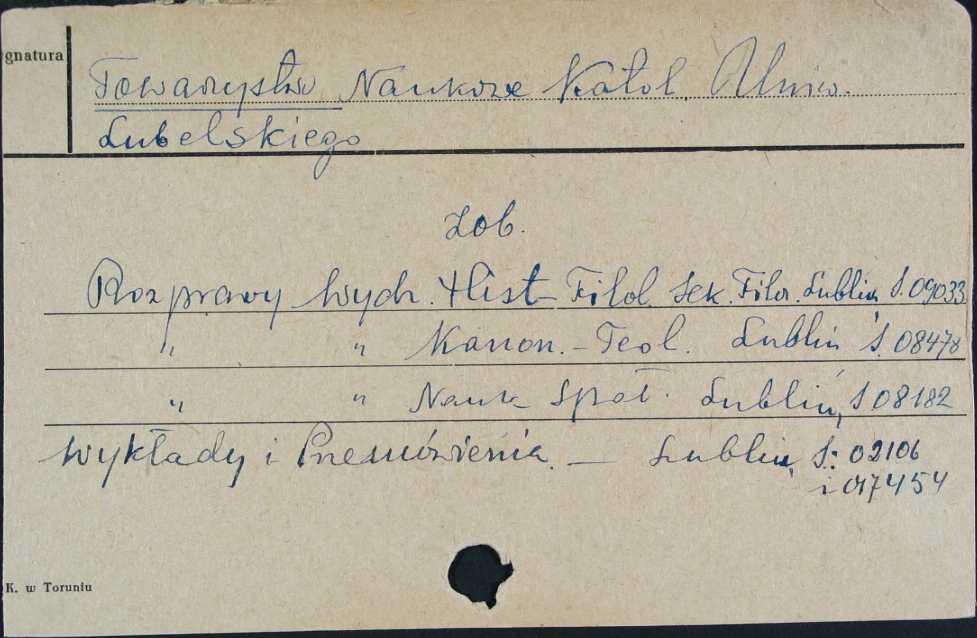 ygnatura
Towarzystw Naukowe Katol. Uniw.
Lubelskiego
Zob.
Rozprawy Wydz. Hist-Filol. Sek. Filoz. Lublin, S. 09033
" " Kanon.-Teol. Lublin S. 08478
" " Nauk Społ. Lublin, S 08182
Wykłady i Przemówienia. — Lublin, S: 02106
i 017454
K. w Toruniu